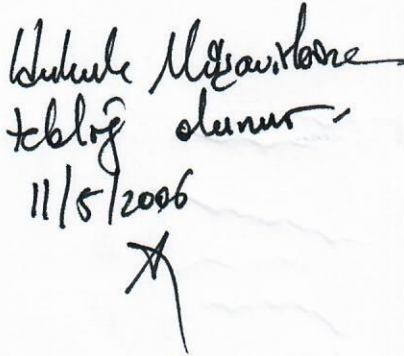 Hukuk Müşavirliğine
tebliğ olunur.
11/5/2006